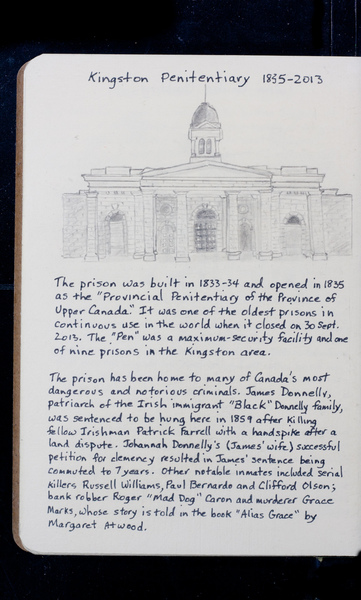 Kingston Penitentiary 1835-2013
The prison was built in 1833-34 and opened in 1835
as the "Provincial Penitentiary of the Province of
Upper Canada." It was one of the oldest prisons in
continuous use in the world when it closed on 30 Sept.
2013. The "Pen" was a maximum-security facility and one
of nine prisons in the Kingston area.
The prison has been home to many of Canada's most
dangerous and notorious criminals. James Donnelly,
patriarch of the Irish immigrant "Black" Donnelly family,
was sentenced to be hung here in 1859 after killing
fellow Irishman Patrick Farrell with a handspike after a
land dispute. Johannah Donnelly's (James' wife) successful
petition for clemency resulted in James' sentence being
commuted to 7 years. Other notable inmates included serial
killers Russell Williams, Paul Bernardo and Clifford Olson;
bank robber Roger "Mad Dog" Caron and murderer Grace
Marks, whose story is told in the book "Alias Grace" by
Margaret Atwood.